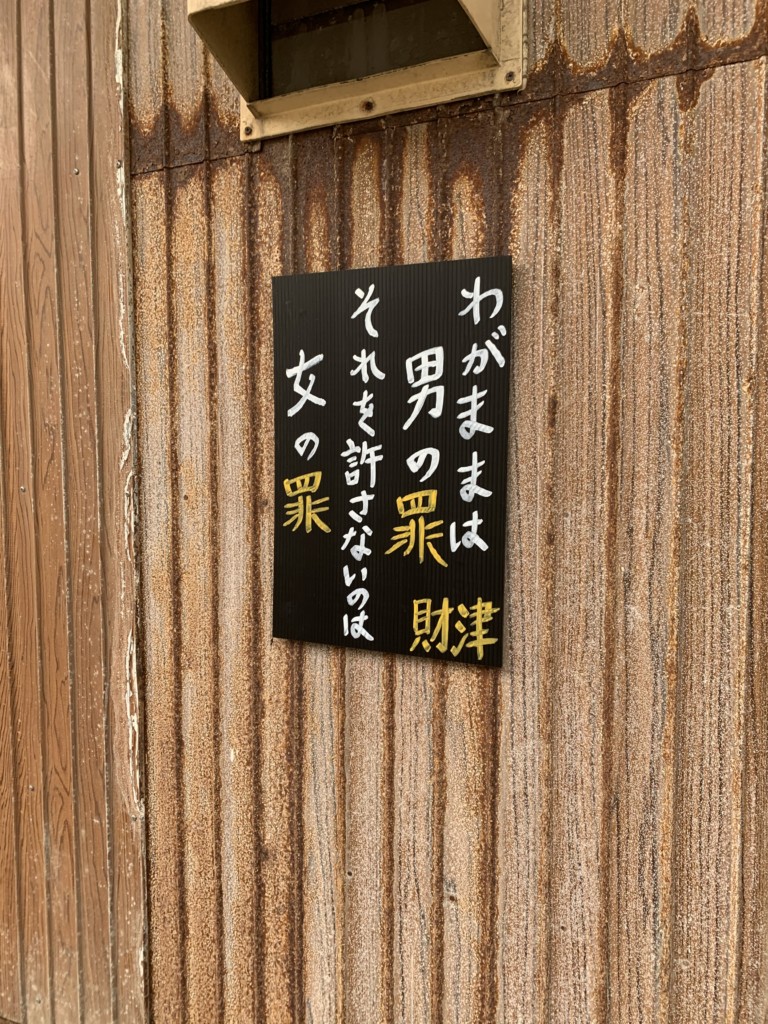 わがままは
男の罪
それを許さないのは
女の罪
財津